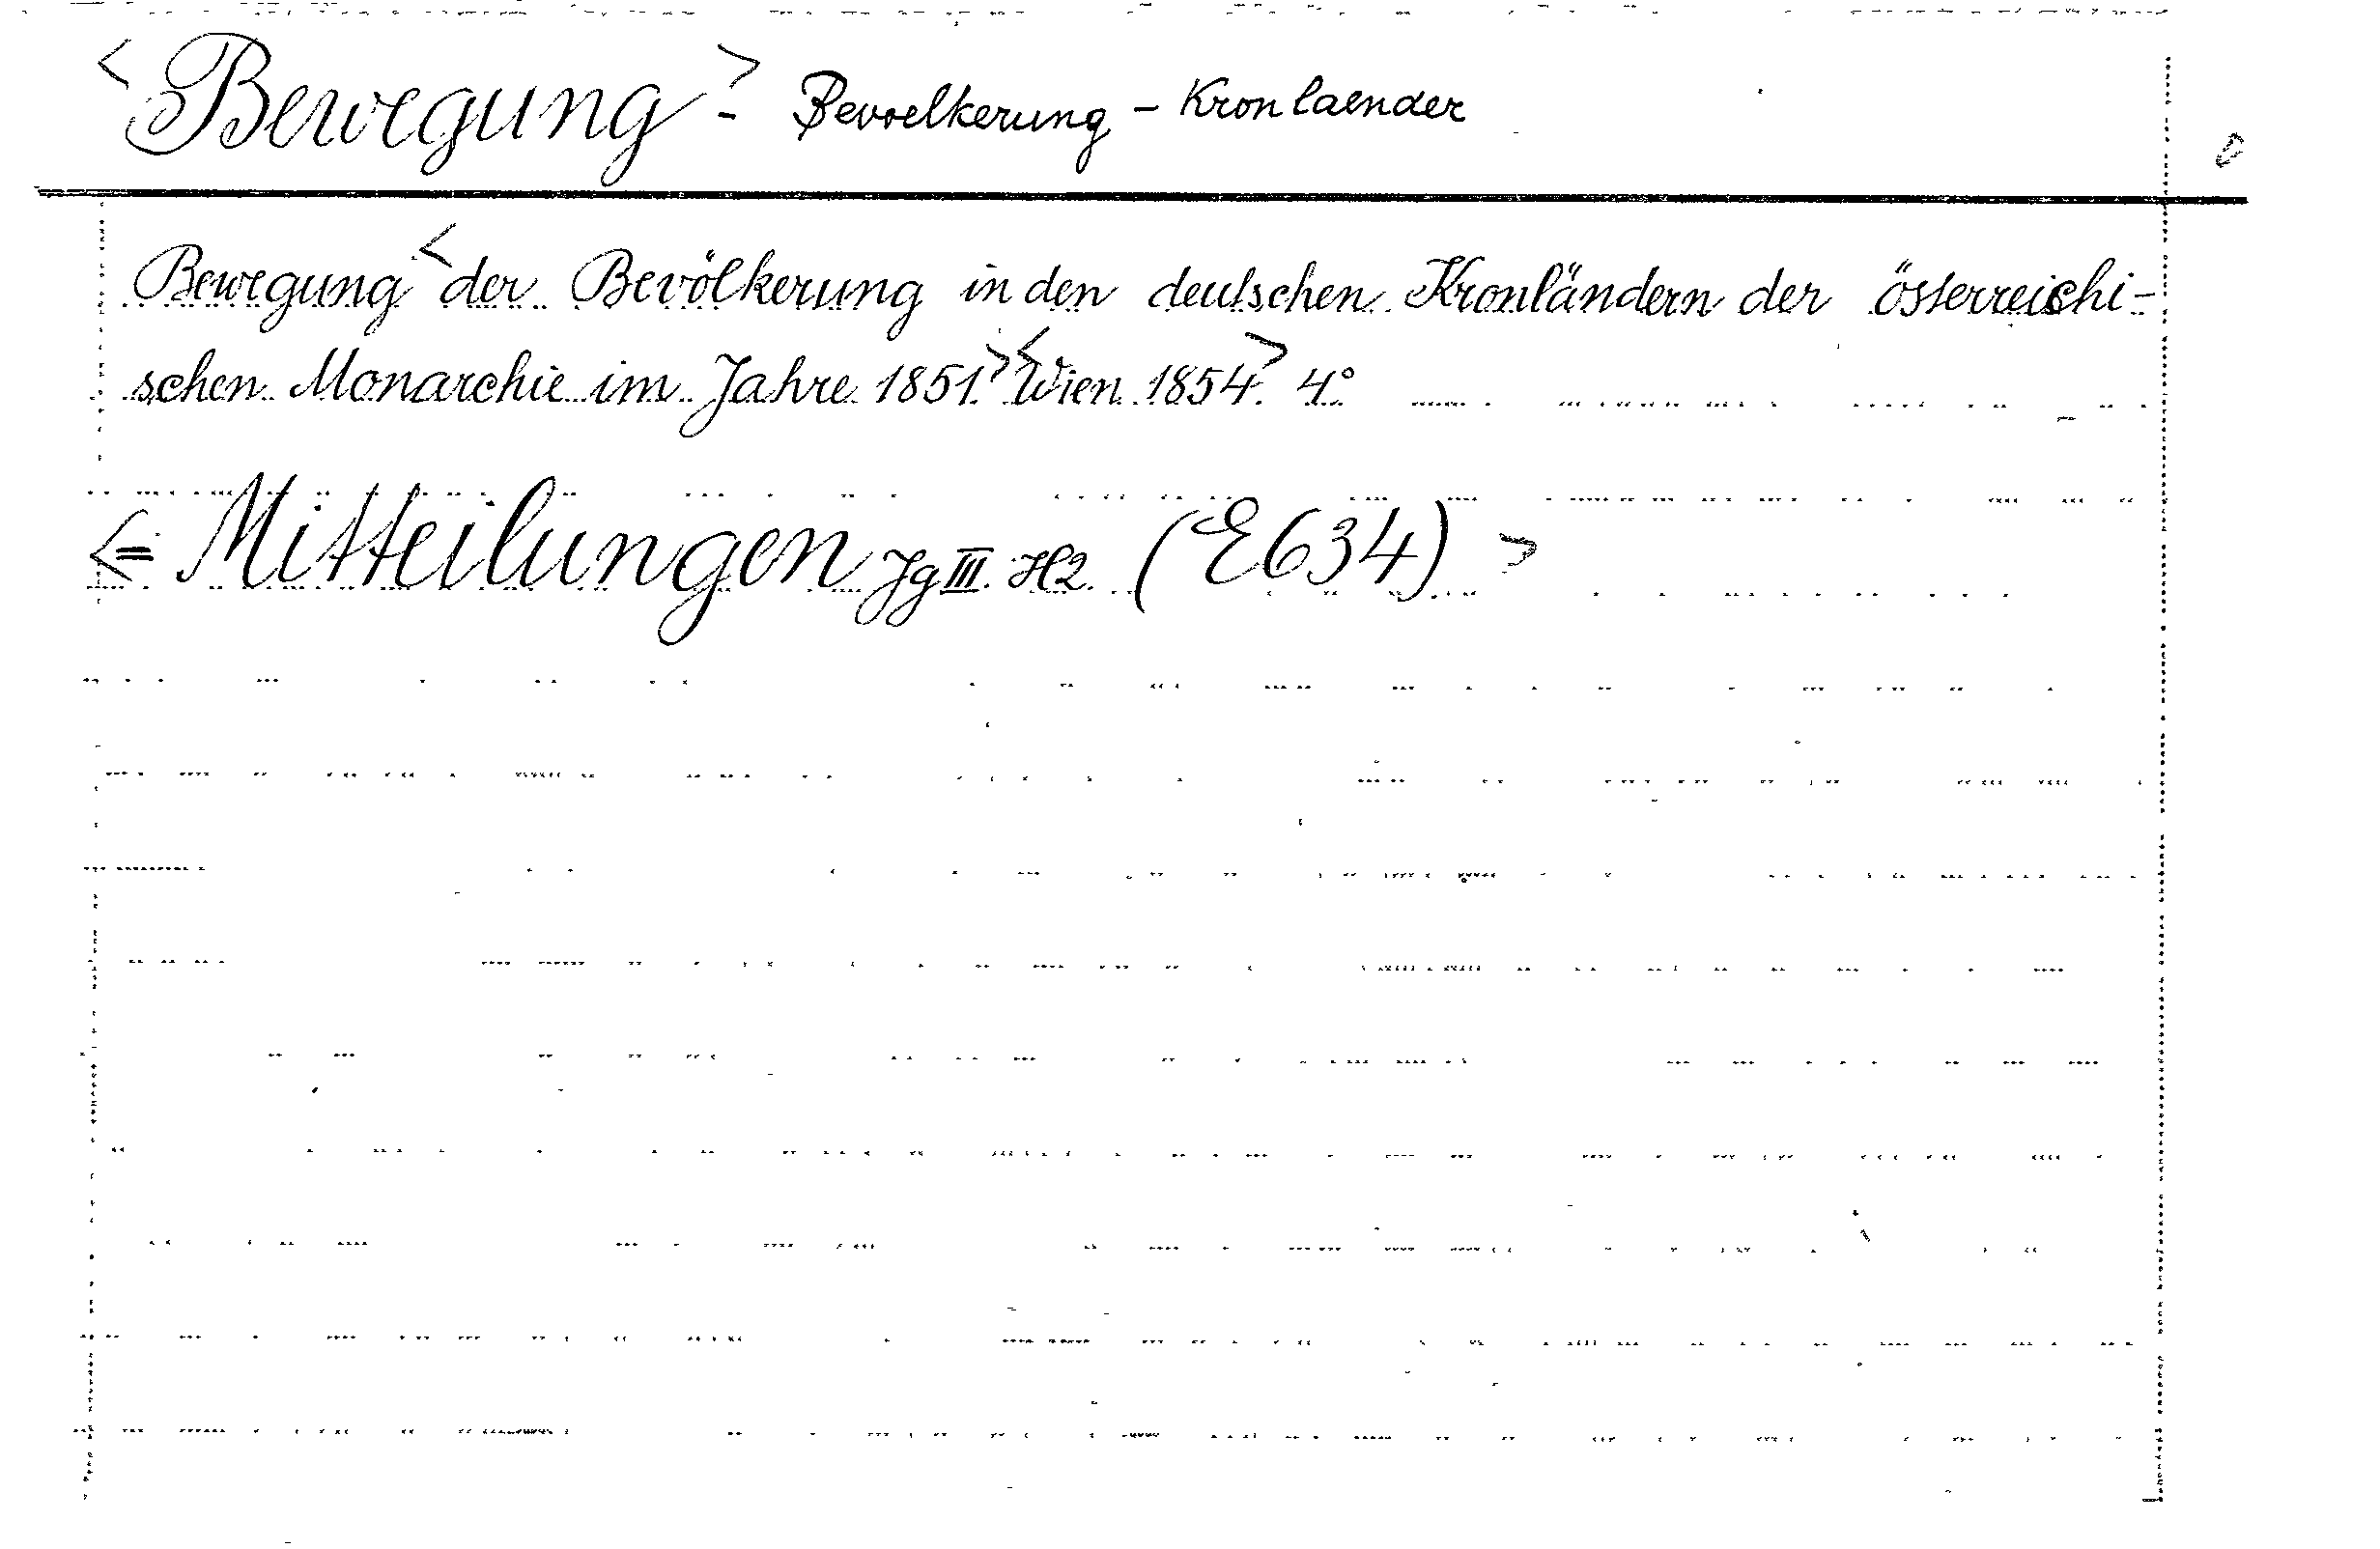 <Bewegung> - Bevoelkerung - Kronlaender
Bewegung <der Bevölkerung in den deutschen Kronländern der österreichi-
schen Monarchie im Jahre 1851.> <Wien 1854>. 4°
<= Mitteilungen Jg III. H2. (E634) >